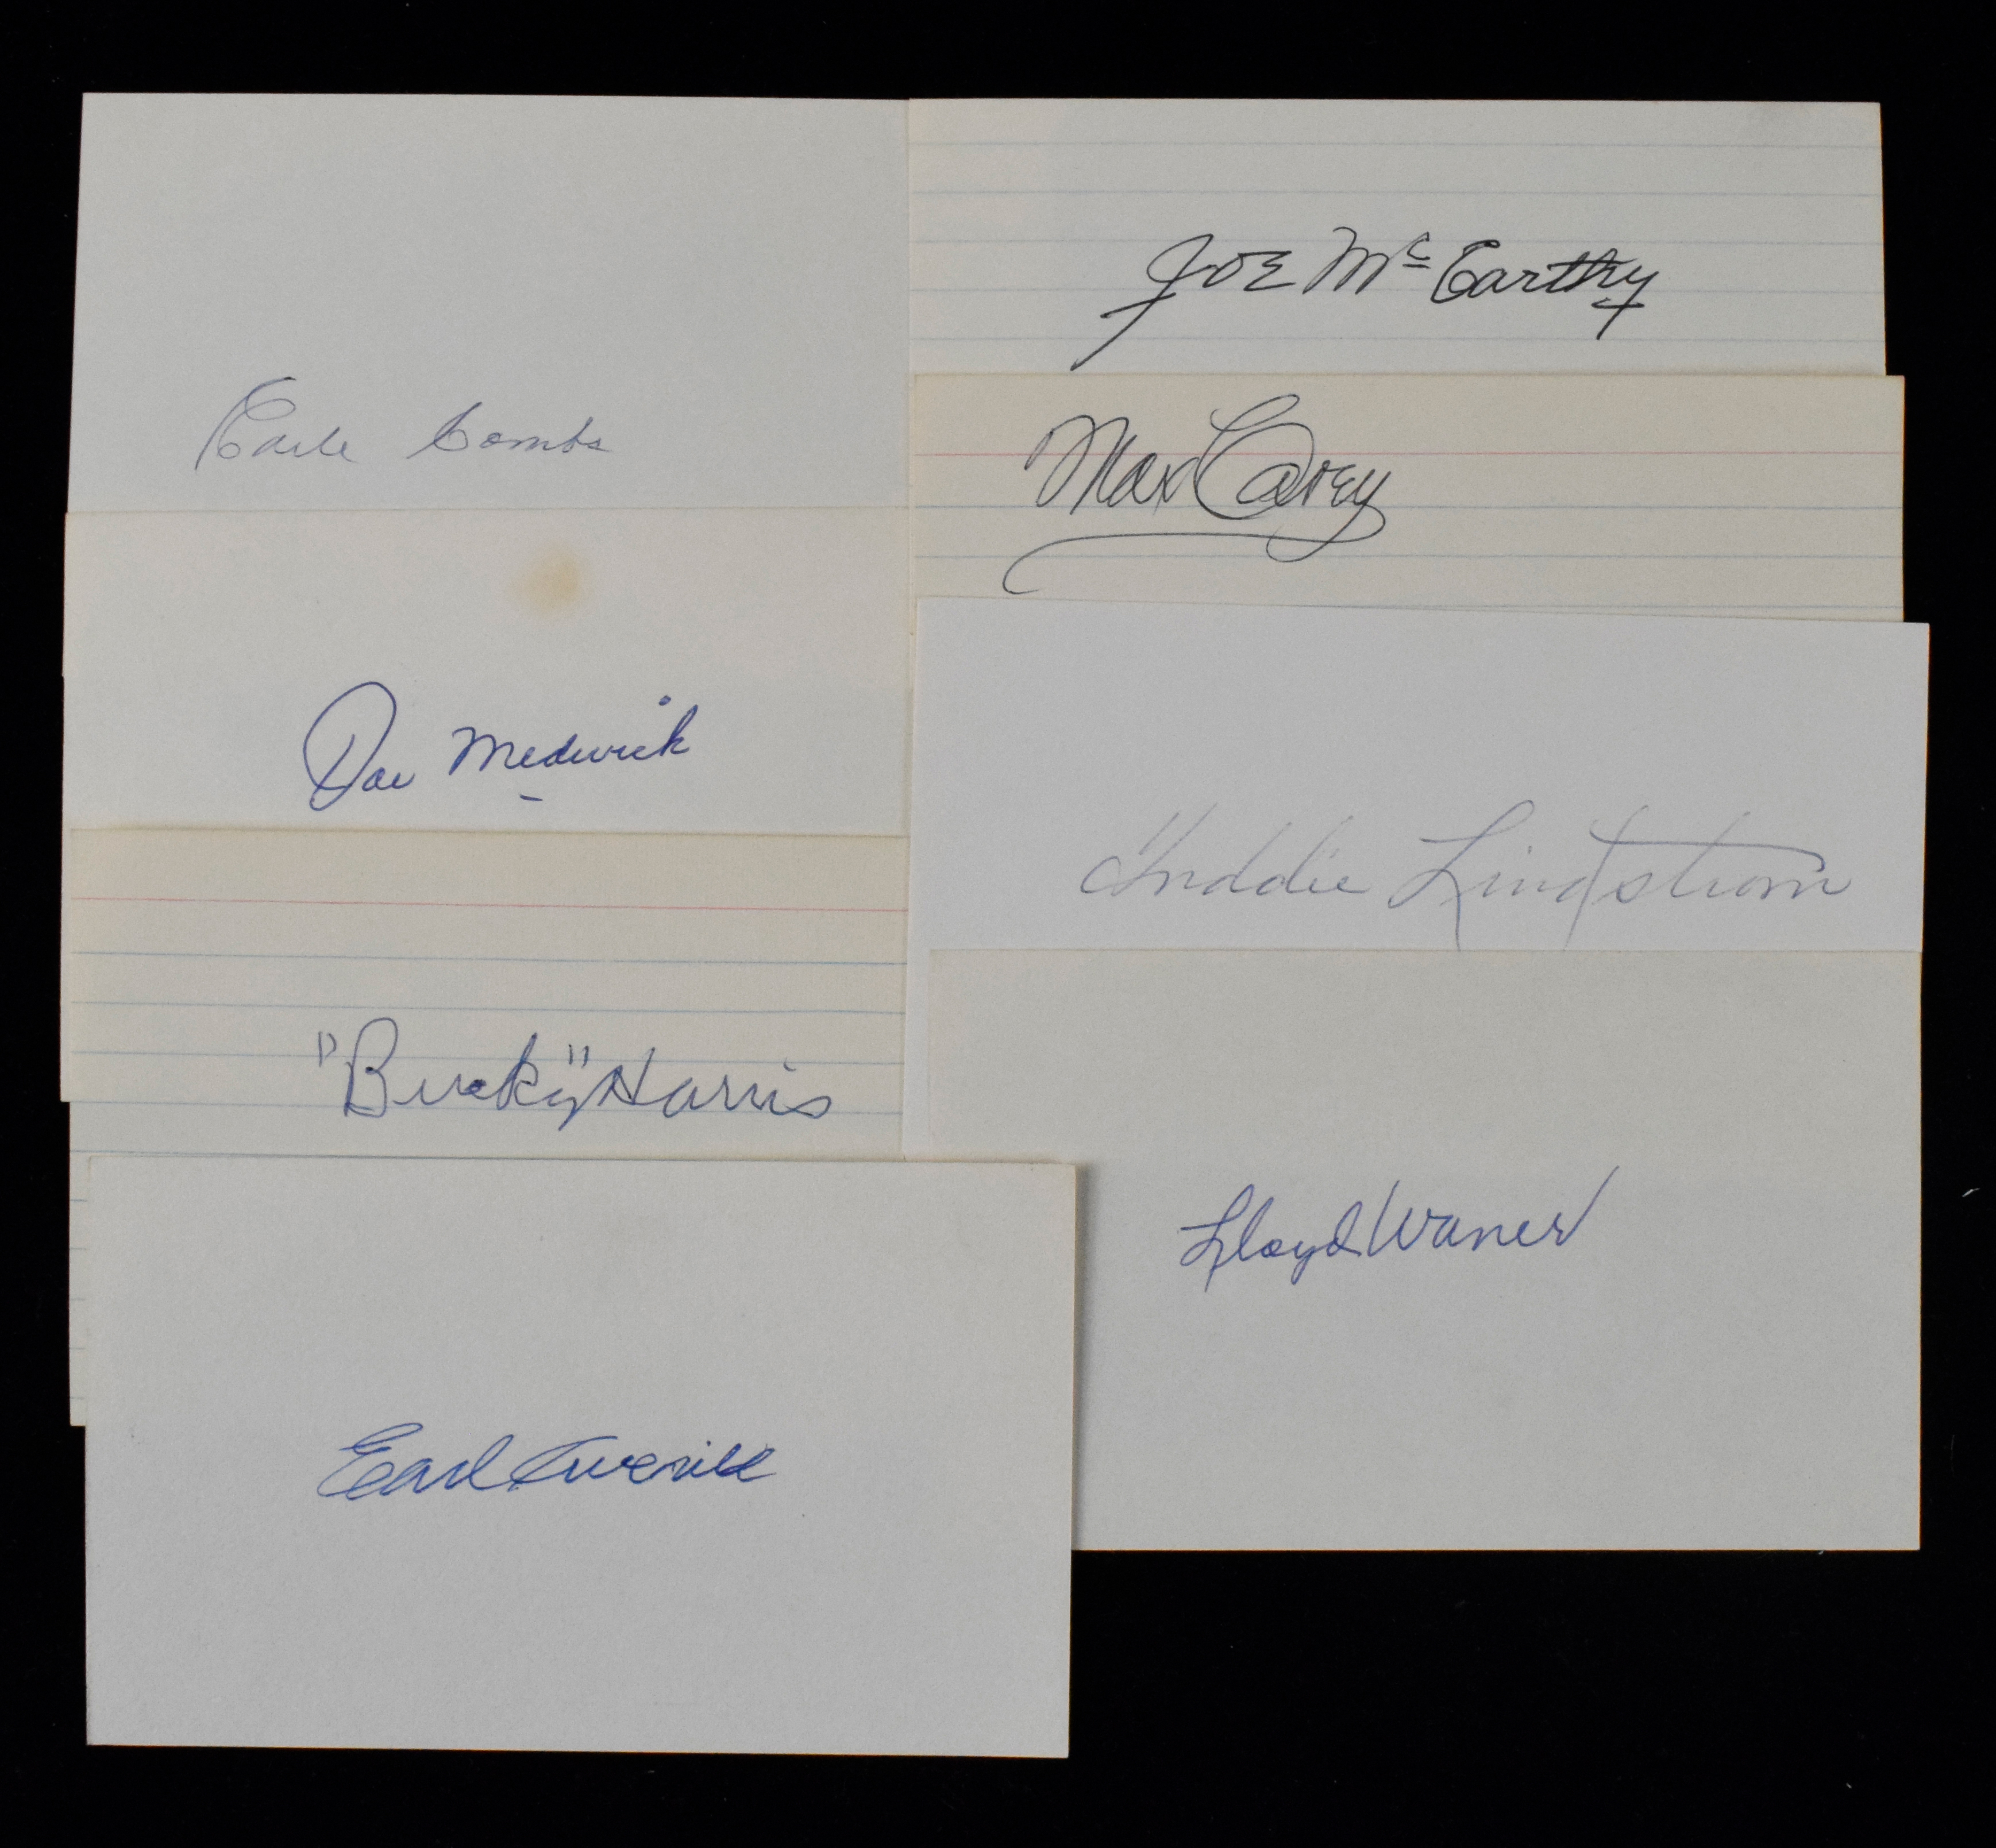 Earle Combs
Joe Medwick
"Bucky" Harris
Earl Averill
Joe McCarthy
Max Carey
Freddie Lindstrom
Lloyd Waner